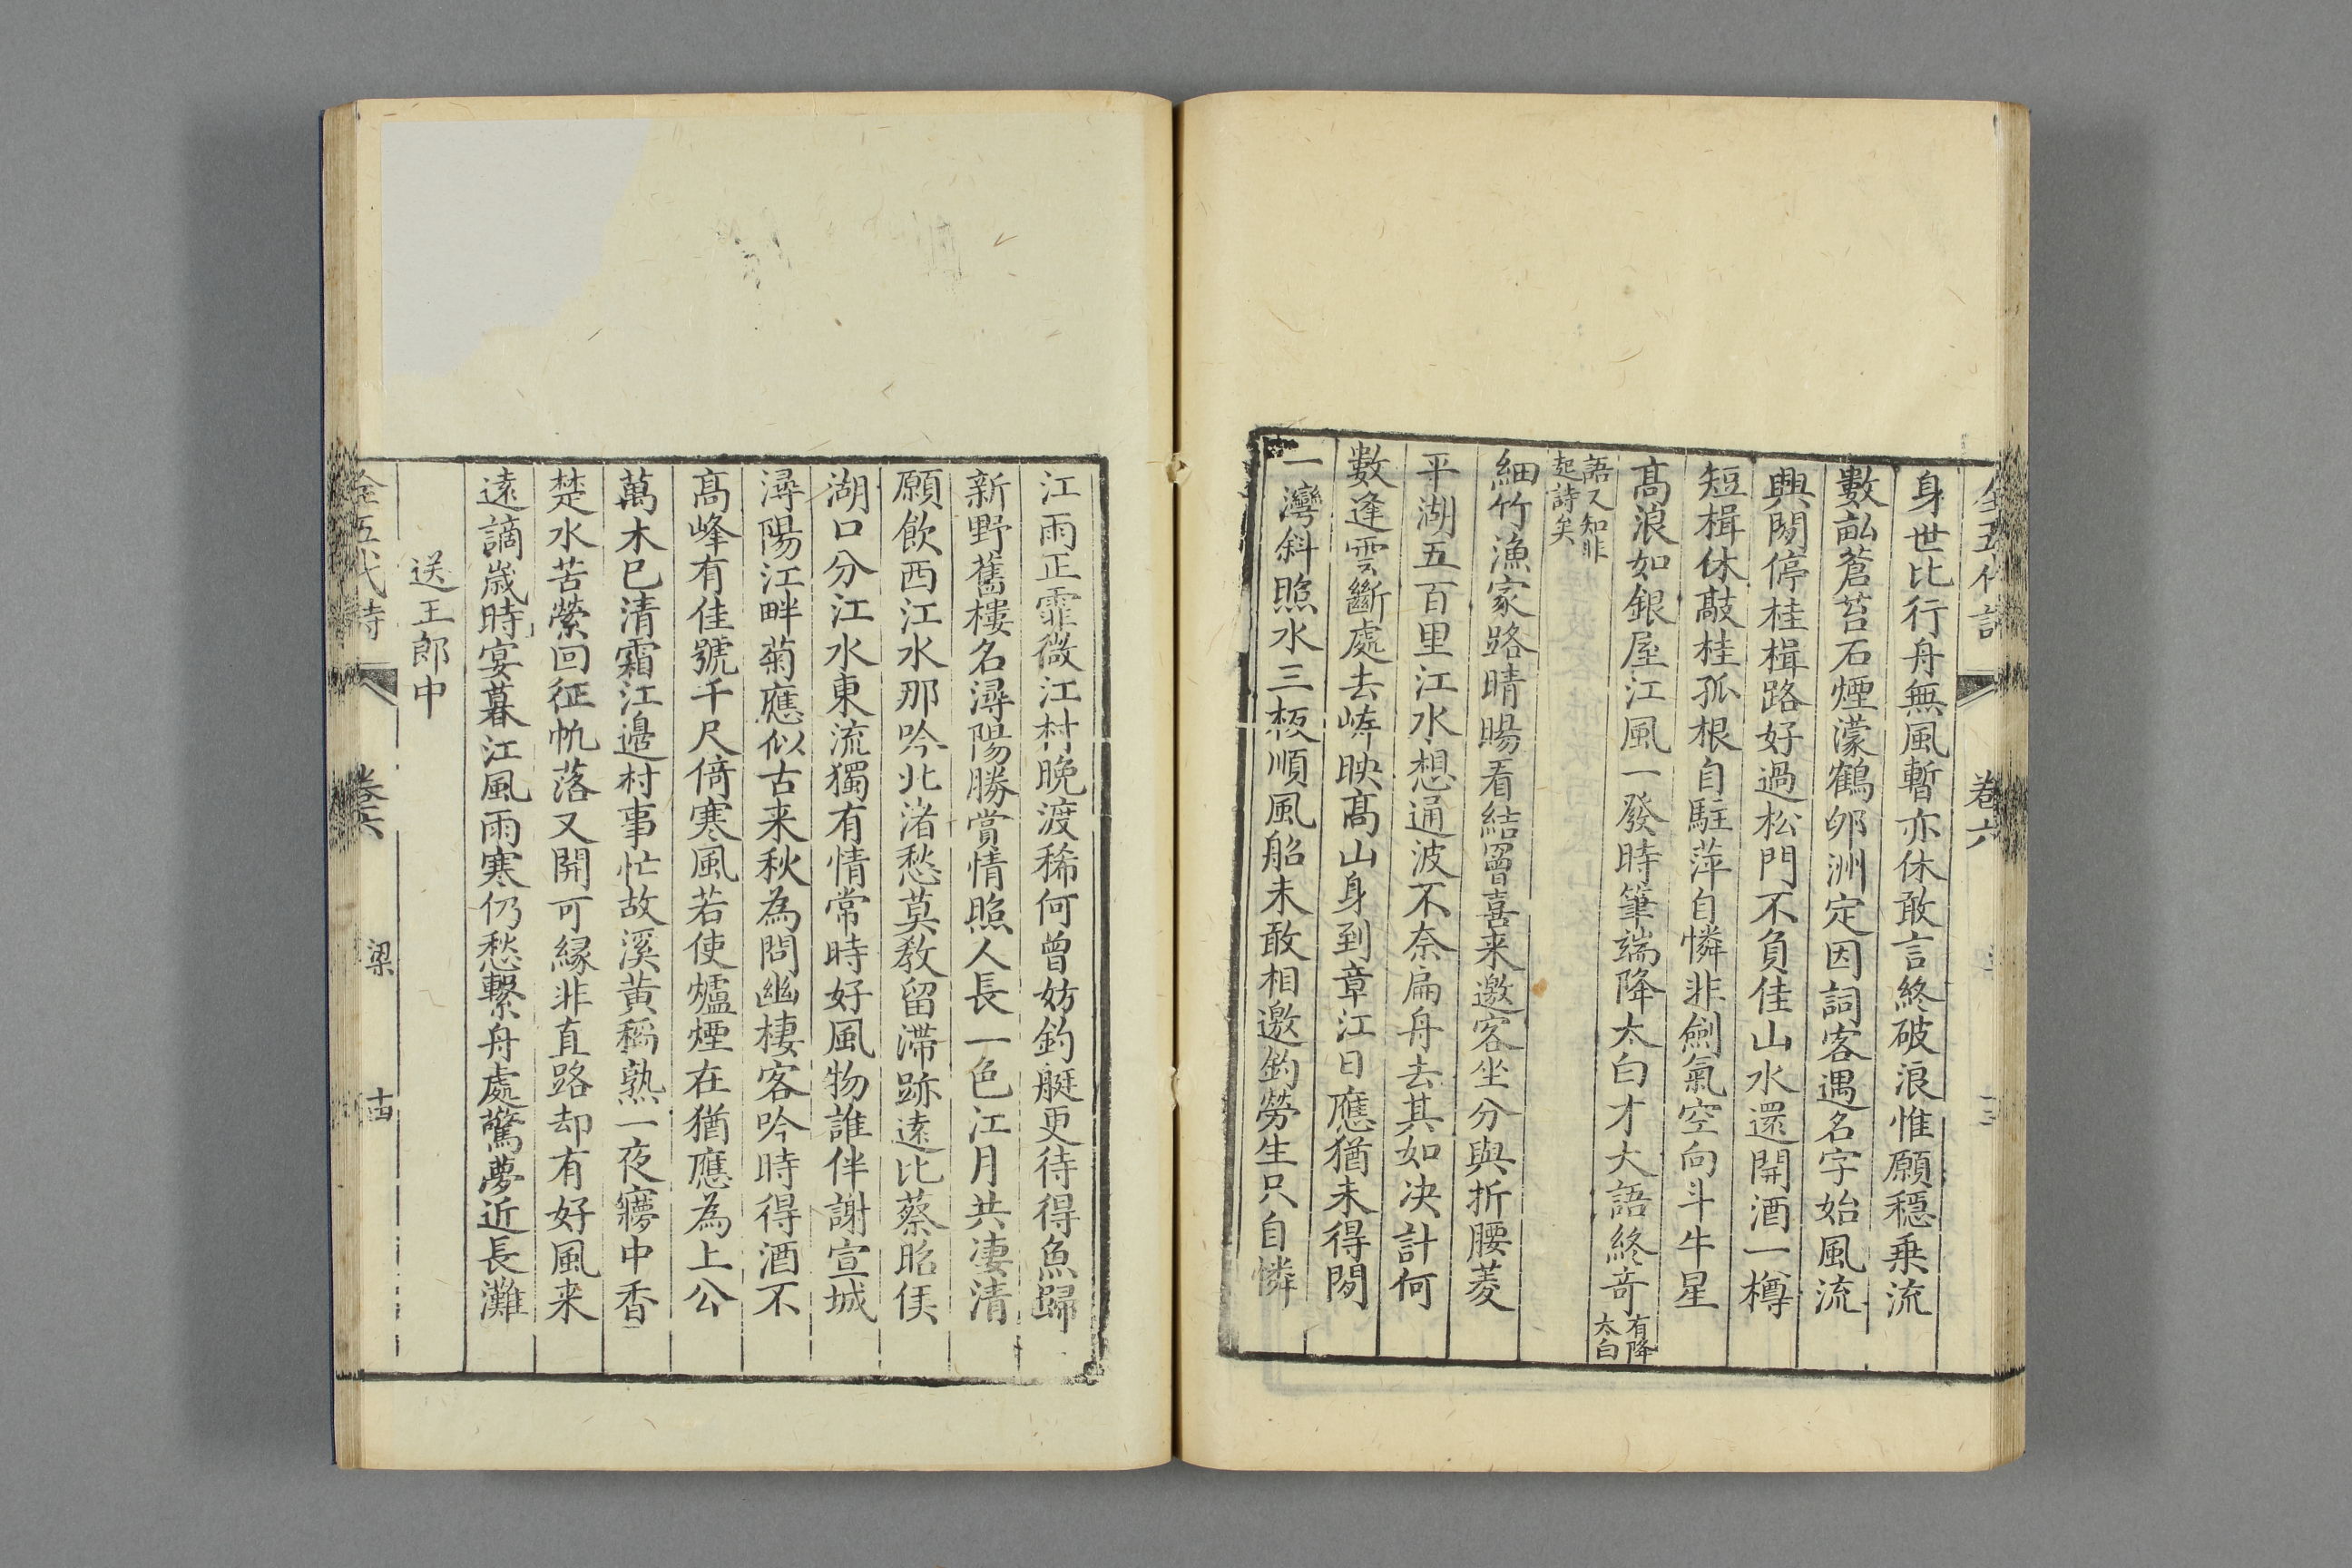 全五代詩 卷六
身世比行舟無風暫亦休敢言終破浪惟願穩乗流
數畝蒼苔石煙濛鶴卵洲定因詞客遇名字始風流
興閑停桂楫路好過松門不負佳山水還開酒一樽
短楫休敲桂孤根自駐萍自憐非劍氣空向斗牛星
髙浪如銀屋江風一發時筆端降太白才大語終竒有降太白
語又知非
起詩矣
細竹漁家路晴暘看結罾喜来邀客坐分與折腰菱
平湖五百里江水想通波不奈扁舟去其如决計何
數逢雲斷處去峰映髙山身到章江日應猶未得閒
一灣斜照水三板順風船未敢相邀釣勞生只自憐
江雨正霏微江村晚渡稀何曾妨釣艇更待得魚歸
新野舊樓名潯陽勝賞情照人長一色江月共凄清
願飲西江水那吟北渚愁莫教留滯跡逺比蔡昭侯
湖口分江水東流獨有情常時好風物誰伴謝宣城
潯陽江畔菊應似古来秋為問幽棲客吟時得酒不
髙峰有佳號千尺倚寒風若使爐煙在猶應為上公
萬木巳清霜江邉村事忙故溪黄稻熟一夜夢中香
楚水苦縈回征帆落又開可縁非直路却有好風来
逺謫歲時宴暮江風雨寒仍愁繫舟處驚夢近長灘
送王郎中
全五代詩 卷六 梁 十四